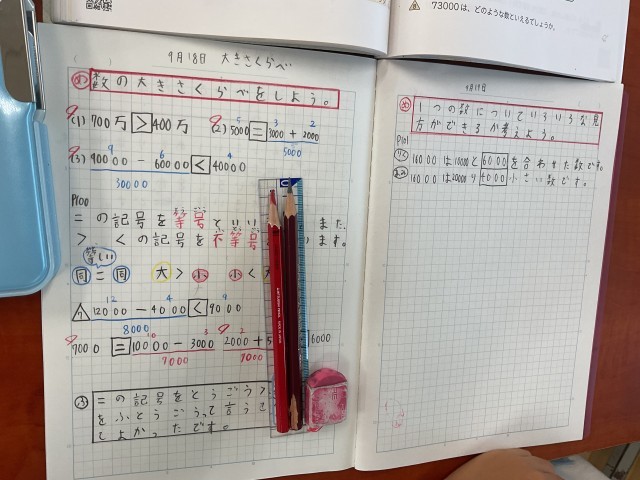 73000は、どのような数といえるでしょうか。
9月18日 大きさくらべ
め 数の大きさくらべをしよう。
(1) 700万 > 400万 (2) 5000 = 3000 + 2000
5 3 2
5000
(3) 90000 - 60000 < 40000
9 6 4
30000
P100
= の記号を等号といい ます。また、
> < の記号を不等号 います。
等しい
同 = 同 大 > 小 小 <
12 4 9
12000 - 4000 < 9000
8000
10 3
7000 = 10000 - 3000 2000 + 5 6000
7000 7000
ふ = の記号をとうごう >
をふとうごうって言うき
しよかったです。
9月19日
め 1つの数についていろいろな見
方ができるか考えよう。
P101
16000は10000と6000を合わせた数です。
16000は20000より4000小さい数です。